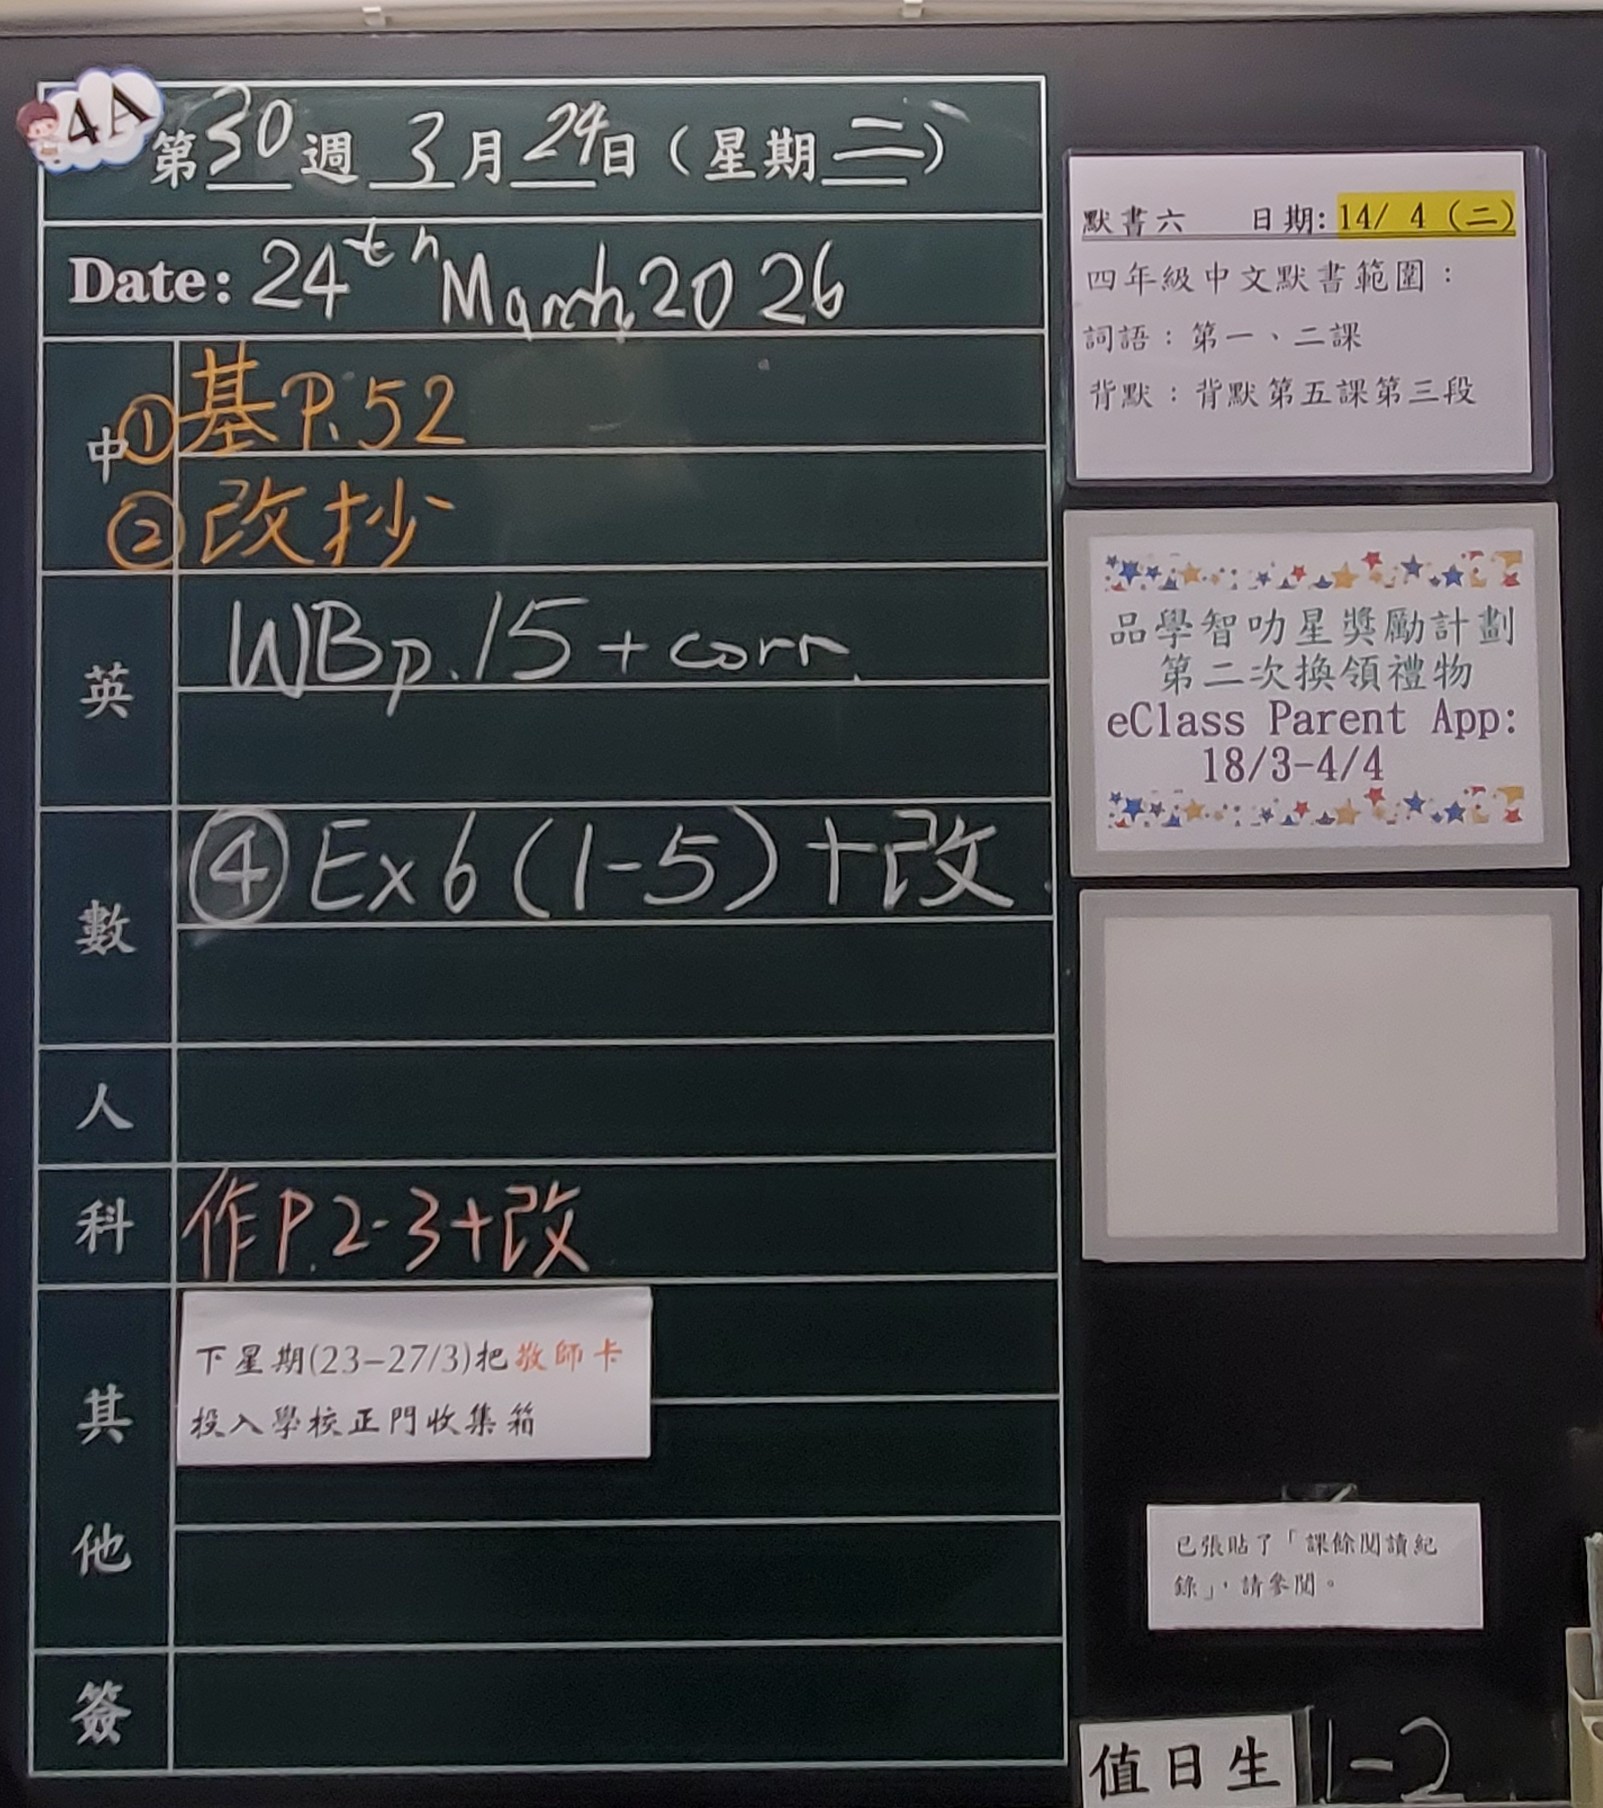 4A
第30週 3月24日（星期二）
Date: 24th March, 2026
中 ①基P.52
②改抄
英 WBp.15+corr.
數 ④Ex6(1-5)+改
人
科 作P.2-3+改
其他
下星期(23-27/3)把敬師卡
投入學校正門收集箱
簽
默書六 日期: 14/ 4 (二)
四年級中文默書範圍：
詞語：第一、二課
背默：背默第五課第三段
品學智叻星獎勵計劃
第二次換領禮物
eClass Parent App:
18/3-4/4
已張貼了「課餘閱讀紀
錄」，請參閱。
值日生 1-2